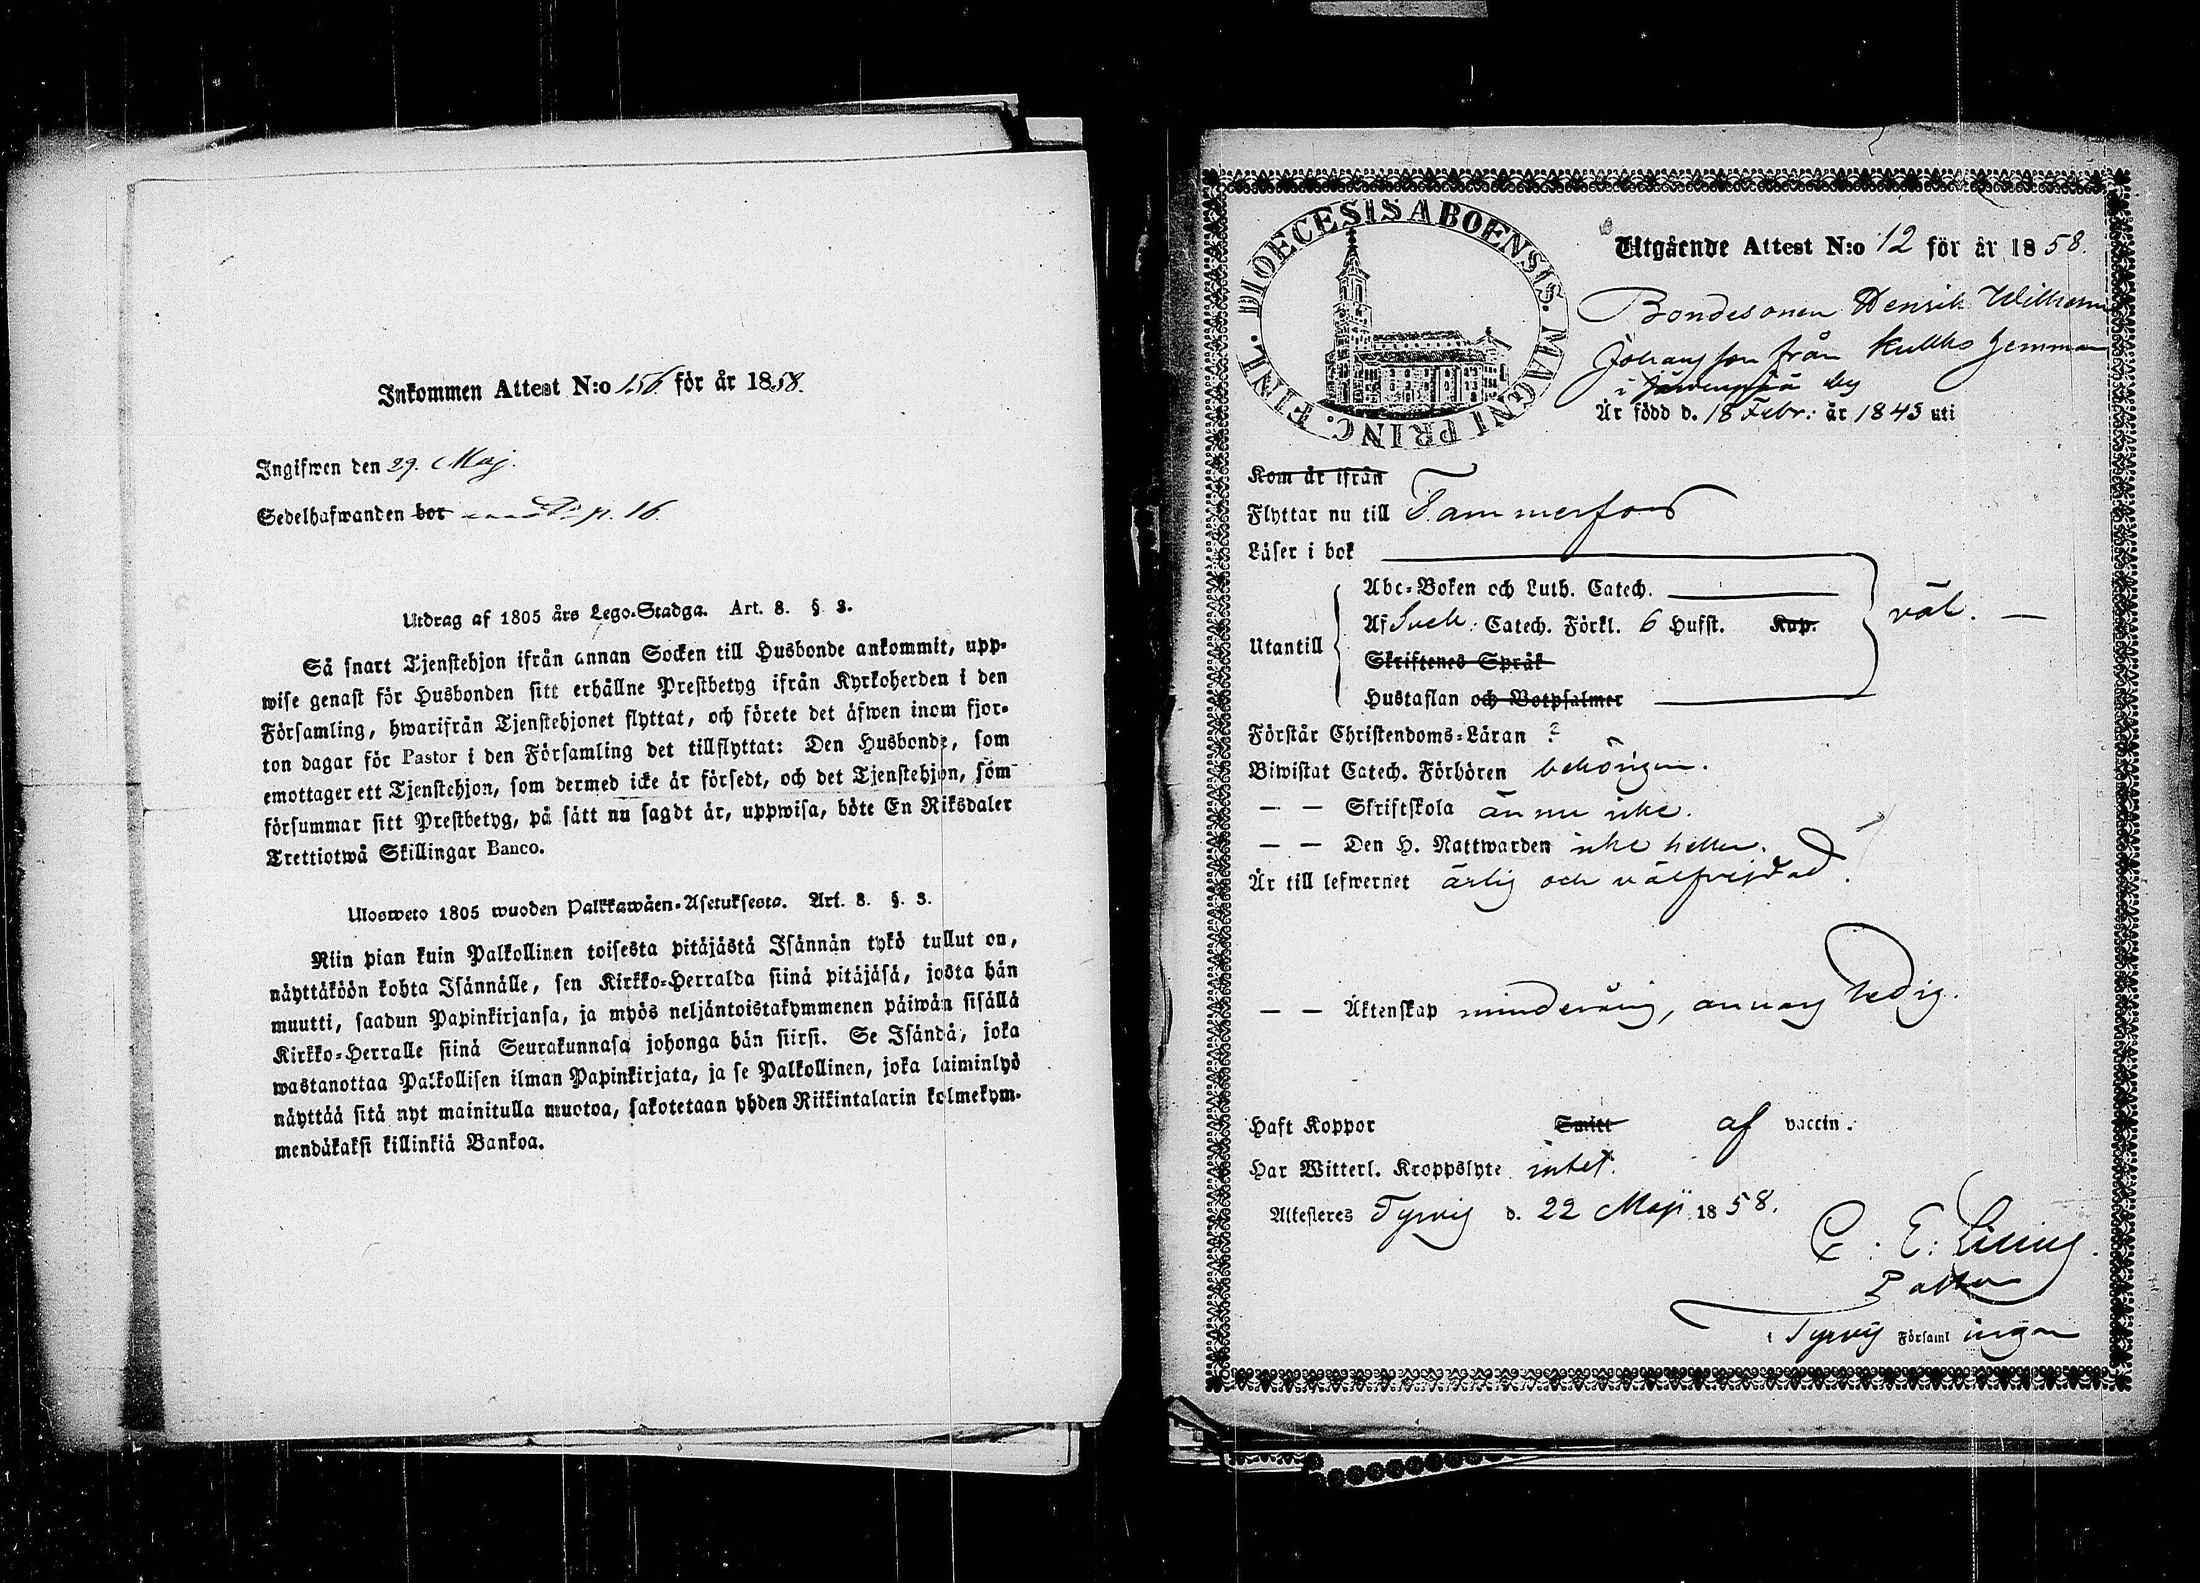 Inkommen Attest N:o 156 för år 1858.
Ingifwen den 29. Maj.
Sedelhafwanden bor p. 16.
Utdrag af 1805 års Lego-Stadga. Art. 8. § 3.
Så snart Tjenstehjon ifrån annan Socken till Husbonde ankommit, upp-
wise genast för Husbonden sitt erhållne Prestbetyg ifrån Kyrkoherden i den
Församling, hwarifrån Tjenstehjonet flyttat, och förete det äfwen inom fjor-
ton dagar för Pastor i den Församling det tillflyttat: Den Husbonde, som
emottager ett Tjenstehjon, som dermed icke är försedt, och det Tjenstehjon, som
försummar sitt Prestbetyg, på sätt nu sagdt är, uppwisa, böte En Riksdaler
Trettiotwå Skillingar Banco.
Ulosweto 1805 wuoden Palkkawäen-Asetuksesta. Art. 8. §. 3.
Niin pian kuin Palkollinen toisesta pitäjästä Isännän tykö tullut on,
näyttäköön kohta Isännälle, sen Kirkko-Herralda siinä pitäjäsä, josta hän
muutti, saadun Papinkirjansa, ja myös neljäntoistakymmenen päiwän sisällä
Kirkko-Herralle siinä Seurakunnasa johonga hän siirsi. Se Isändä, joka
wastanottaa Palkollisen ilman Papinkirjata, ja se Palkollinen, joka laiminlyö
näyttää sitä nyt mainitulla muotoa, sakotetaan yhden Riikintalarin kolmekym-
mendäkaksi killinkiä Bankoa.
DIOECESIS ABOENSIS. MAGNI PRINC. FINL.
Utgående Attest N:o 12 för år 1858.
Bondesonen Henrik Wilhelm
Johansson från Kulko hemman
i Järvenpää by
Är född d. 18 Febr: år 1843 uti
Kom år ifrån
Flyttar nu till Tammerfors
Läser i bok
Abc-Boken och Luth. Catech.
Af Sveb: Catech. Förkl. 6 Hufst. Kap. väl. —
Utantill
Skriftenes Språk
Hustaflan och Botpsalmer
Förstår Christendoms-Läran ?
Biwistat Catech. Förhören behörigen.
— — Skriftskola ännu icke.
— — Den H. Nattwarden icke heller.
Är till lefwernet ärlig och välfrejdad.
— — Äktenskap minderårig, annars ledig.
Haft Koppor Smitt af vaccin.
Har Witterl. Kroppslyte intet.
Attesteres Tyrvis d. 22 Maji 1858.
C. E. Lilius.
Pastor
i Tyrvis Församl ingar